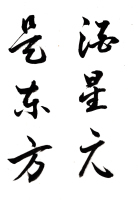 酒星元
是东方